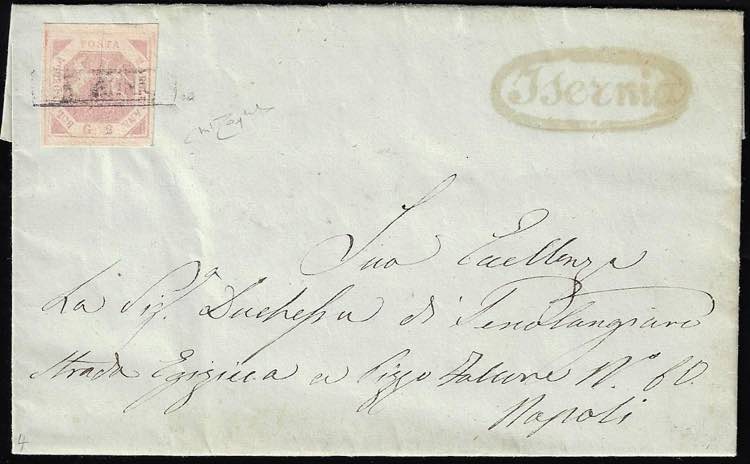 POSTA
G 2
Isernia
Sua Eccellenza
La Sig.ª Duchessa di
Strada Egiziaca a Pizzo Falcone N.º 60.
Napoli
4